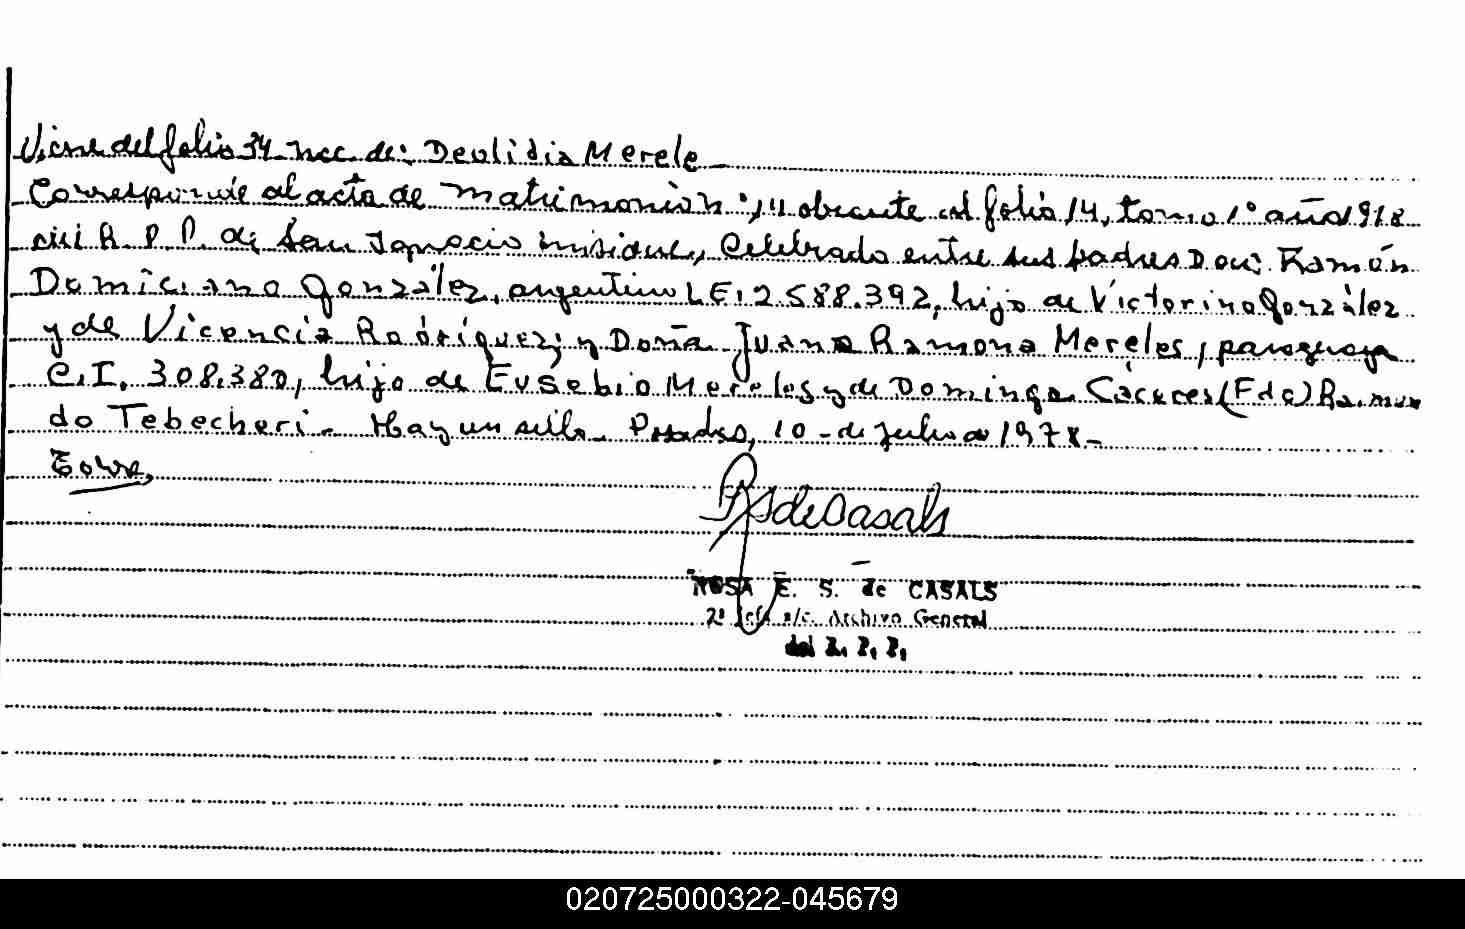 Viene del folio 34 nac. de: Deolidia Merele
Corresponde al acta de matrimonio n: 11 obrante al folio 14, tomo 1° año 1978
del R. P. P. de San Ignacio misiones, Celebrado entre sus padres Don: Ramón
Domiciano González, argentino L E: 2.588.392, hijo de Victorino González
y de Vicencia Rodríguez; y Doña Juana Ramona Mereles, paraguaya
C. I. 308.380, hijo de Eusebio Mereles y de Dominga Cáceres (Fdo) Raimun
do Tebecheri.- Hay un sello. Posadas, 10 - de julio de 1978.-
RS de Casals
ROSA E. S. de CASALS
2ª Jefa a/c. Archivo General
del R. P. P.
020725000322-045679